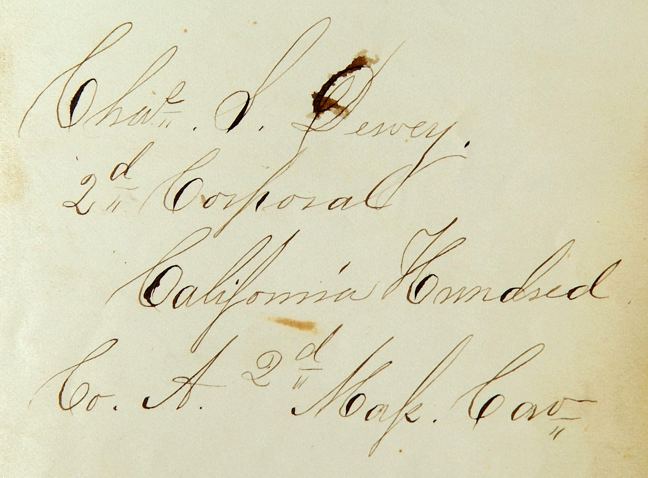 Chas. S. Dewey.
2d Corporal
California Hundred
Co. A. 2d Mass. Cav